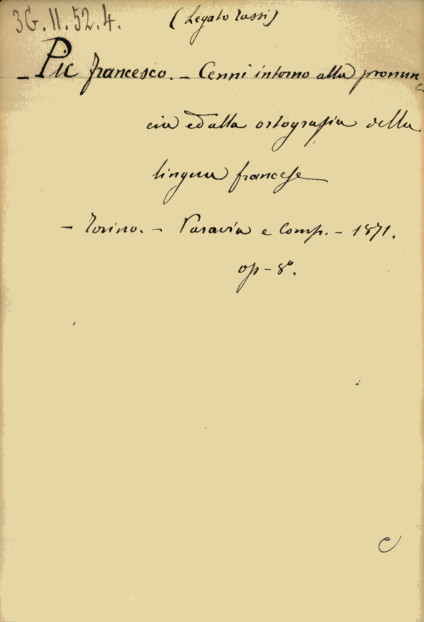 3G. II. 52. 4. (Legato Tassi)
- Pic Francesco. - Cenni intorno alla pronun=
cia ed alla ortografia della
lingua francese
- Torino. - Paravia e Comp. - 1871.
op - 8°.
C